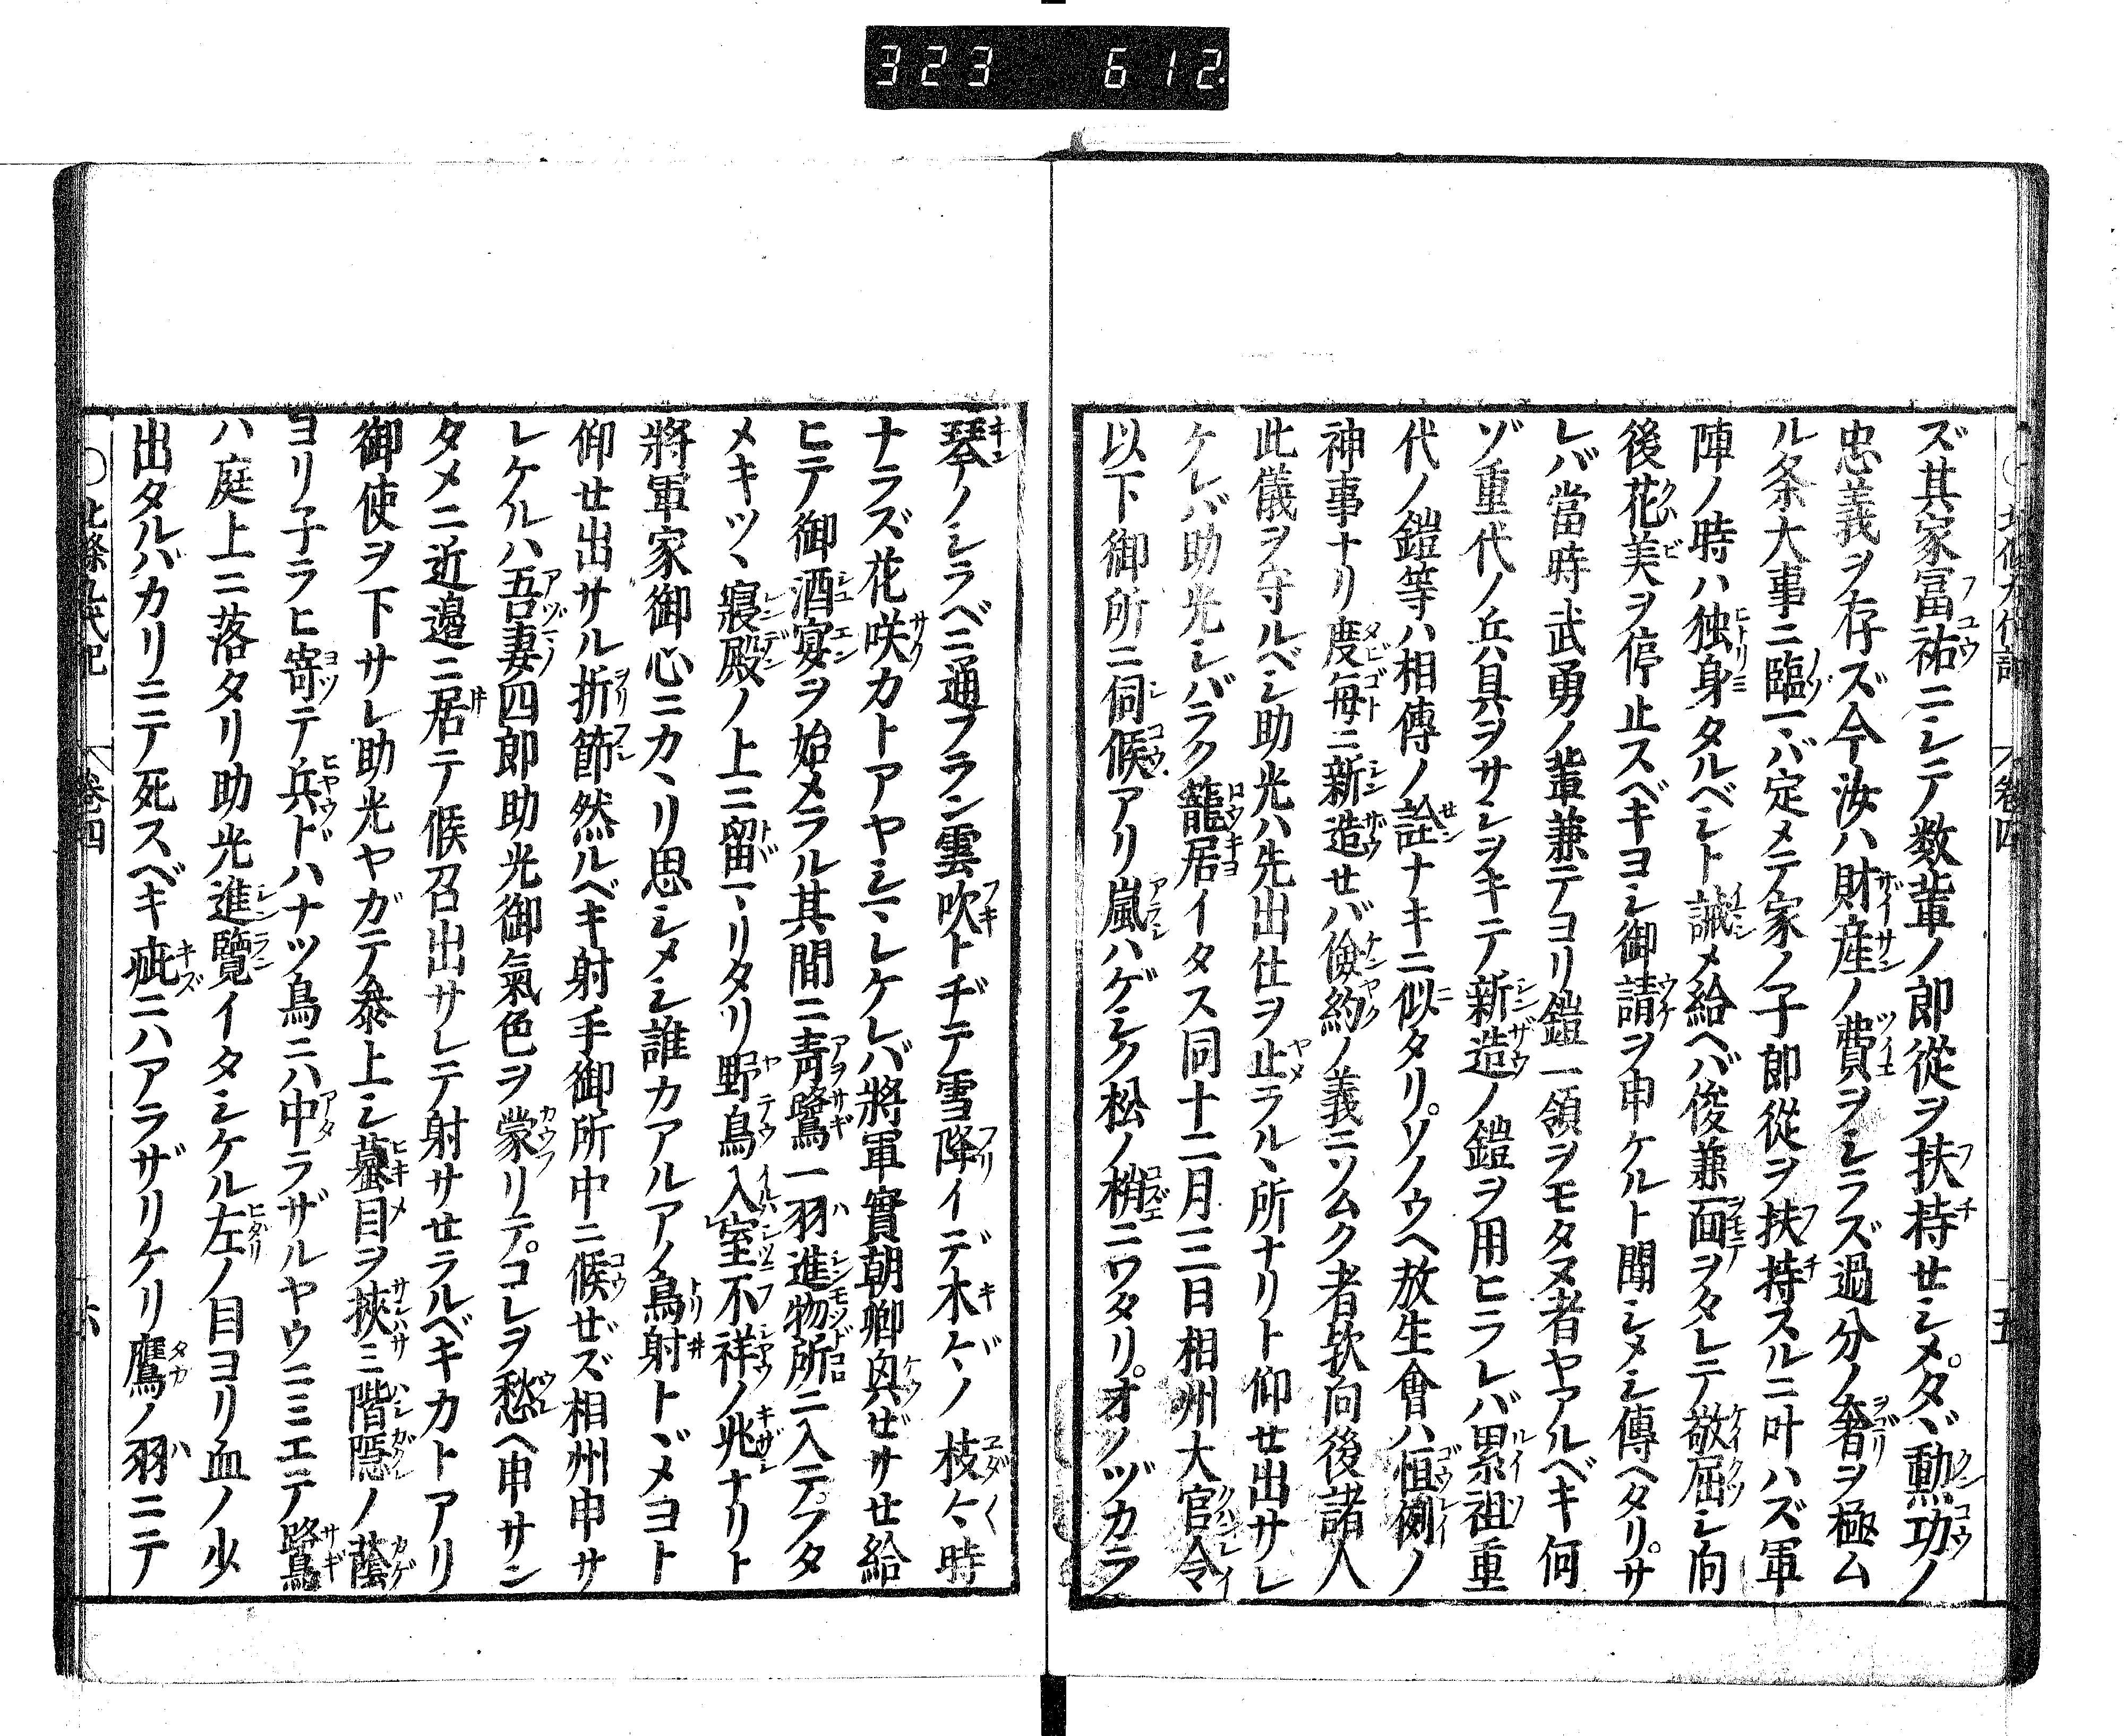 323 612.
ズ其家冨祐ニシテ数輩ノ郎從ヲ扶持セシメ。タヾ勳功ノ
忠義ヲ存ズ今汝ハ財産ノ費ヲシラズ過分ノ奢ヲ極ム
ル条大事ニ臨マバ定メテ家ノ子郎從ヲ扶持スルニ叶ハズ軍
陣ノ時ハ独身タルベシト誡メ給ヘバ俊兼面ヲタレテ敬屈シ向
後花美ヲ停止スベキヨシ御請ヲ申ケルト聞シメシ傳ヘタリ。サ
レバ當時武勇ノ輩兼テヨリ鎧一領ヲモタヌ者ヤアルベキ何
ゾ重代ノ兵具ヲサシヲキテ新造ノ鎧ヲ用ヒラレバ累祖重
代ノ鎧等ハ相傳ノ詮ナキニ似タリ。ソノウヘ放生會ハ恒例ノ
神事ナリ度毎ニ新造セバ儉約ノ義ニソムク者欤向後諸人
此儀ヲ守ルベシ助光ハ先出仕ヲ止ラルヽ所ナリト仰セ出サレ
ケレバ助光シバラク籠居イタス同十二月三日相州大官令
以下御所ニ伺候アリ嵐ハゲシク松ノ梢ニワタリ。オノヅカラ
琴ノシラベニ通フラン雲吹トヂテ雪降イデ木ヾノ枝ヽ時
ナラズ花咲カトアヤシマレケレバ將軍實朝卿興ゼサセ給
ヒテ御酒宴ヲ始メラル其間ニ青鷺一羽進物所ニ入テ。フタ
メキツヽ寢殿ノ上ニ留マリタリ野鳥入室不祥ノ兆ナリト
將軍家御心ニカヽリ思シメシ誰カアルアノ鳥射トヾメヨト
仰セ出サル折節然ルベキ射手御所中ニ候ゼズ相州申サ
レケルハ吾妻四郎助光御氣色ヲ蒙リテ。コレヲ愁ヘ申サン
タメニ近邊ニ居テ候召出サレテ射サセラルベキカトアリ
御使ヲ下サレ助光ヤガテ參上シ蟇目ヲ挾ミ階隱ノ蔭
ヨリ子ラヒ寄テ兵ドハナツ鳥ニハ中ラザルヤウニミエテ鷺
ハ庭上ニ落タリ助光進覽イタシケル左ノ目ヨリ血ノ少
出タルバカリニテ死スベキ疵ニハアラザリケリ鷹ノ羽ニテ
〇北條九代記 卷四 六